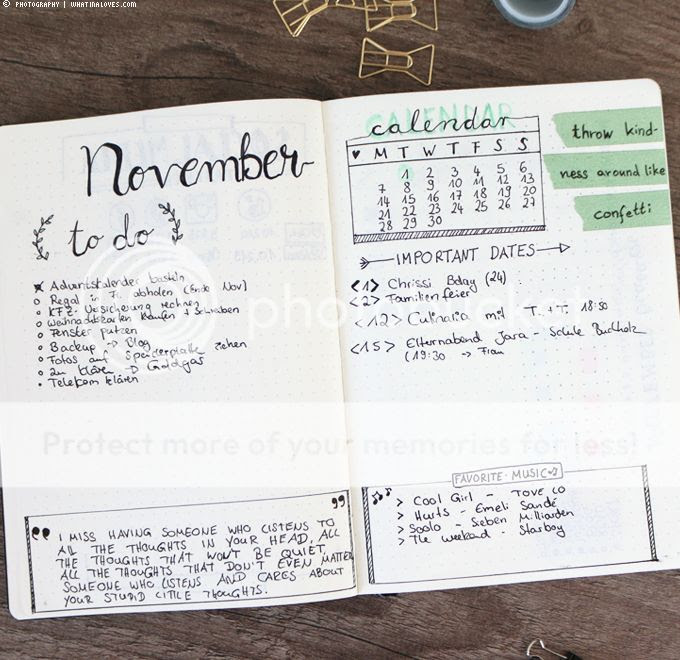 © PHOTOGRAPHY | WHATINALOVES.COM
November
to do
Adventskalender basteln
Regal in Fr. abholen (Ende Nov)
KFZ-Versicherung rechnen
Weihnachtskarten kaufen + schreiben
Fenster putzen
Backup → Blog
Fotos auf Speicherplatte ziehen
zu klären → Goldgas
Telekom klären
I MISS HAVING SOMEONE WHO LISTENS TO
ALL THE THOUGHTS IN YOUR HEAD, ALL
THE THOUGHTS THAT WON'T BE QUIET,
ALL THE THOUGHTS THAT DON'T EVEN MATTER
SOMEONE WHO LISTENS AND CARES ABOUT
YOUR STUPID LITTLE THOUGHTS.
CALENDAR
calendar
♥ M T W T F S S
1 2 3 4 5 6
7 8 9 10 11 12 13
14 15 16 17 18 19 20
21 22 23 24 25 26 27
28 29 30
throw kind-
ness around like
confetti
IMPORTANT DATES
<1> Chrissi Bday (24)
<2> Familienfeier
<12> Culinaria mit T. + T. 18:50
<15> Elternabend Jara - Schule Buchholz
(19:30 → Frau
FAVORITE-MUSIC
> Cool Girl - TOVE LO
> Hurts - Emeli Sandé
> Soolo - Sieben Milliarden
> The weekend - Starboy
photobucket
Protect more of your memories for less!